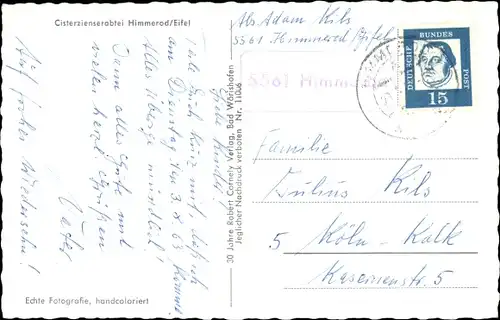 Cisterzienserabtei Himmerod/Eifel
Abs Adam Kils
5561 Himmerod/Eifel
5561 Himmerod
DEUTSCHE BUNDES POST
15
Liebe Kinder!
Teile Euch kurz mit, daß ich
am Dienstag den 3.X.63 komme.
Alles Übrige mündlich!
Dann alles Gute und
vielen herzl. Grüßen
Vater
Auf frohes Wiedersehn!
30 Jahre Robert Cornely Verlag, Bad Wörishofen
Jeglicher Nachdruck verboten Nr. 11006
Familie
Julius Kils
5 Köln-Kalk
Kasernenstr. 5
Echte Fotografie, handcoloriert